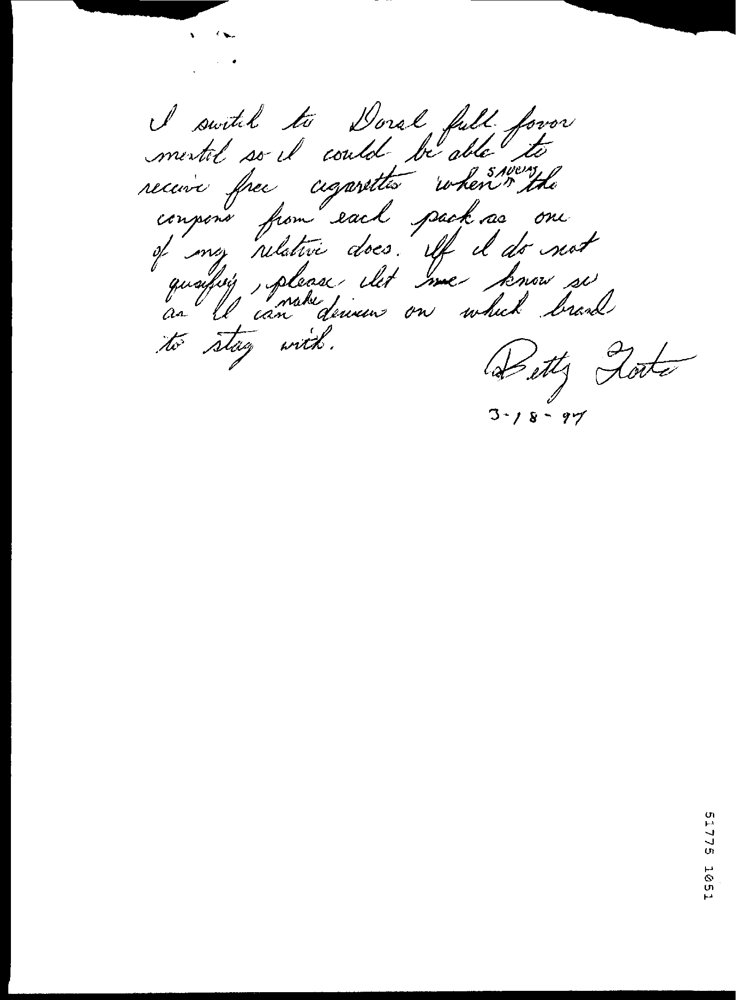 I switch to Doral full favor
mentol so I could be able to
receive free cigarettes when saveing the
coupons from each pack as one
of my relative does. If I do not
qusifiy, please let me know so
as I can make on which brand
to stay with.
Betty
3-18-97
51775 1051